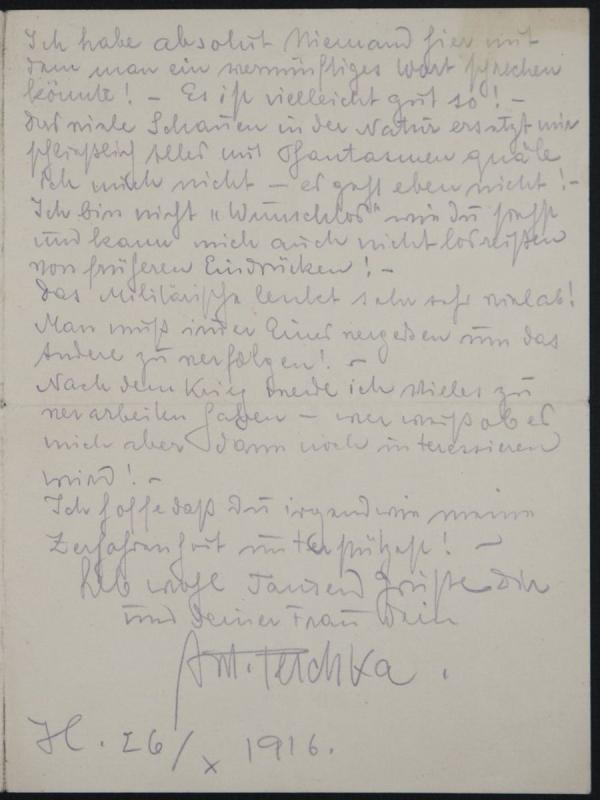 Ich habe absolut Niemand hier mit
dem man ein vernünftiges Wort sprechen
könnte! – Es ist vielleicht gut so! –
das viele Schauen in der Natur ersetzt mir
schließlich Alles mit Phantasmen quäle
ich mich nicht – es geht eben nicht! –
Ich bin nicht „Wunschlos" wie du
und kann mich auch nicht losreißen
von früheren Eindrücken! –
Das Militärische lenkt sehr viel ab!
Man muß immer Eines vergessen um das
Andere zu verfolgen! –
Nach dem Krieg werde ich Vieles zu
verarbeiten haben – wer weiß ob es
mich aber dann noch interessieren
wird! –
Ich hoffe daß du irgendwie meine
Zerfahrenheit unterstützest! –
Leb wohl Tausend Grüße dir
und deiner Frau Dein
.
H. 26/X 1916.